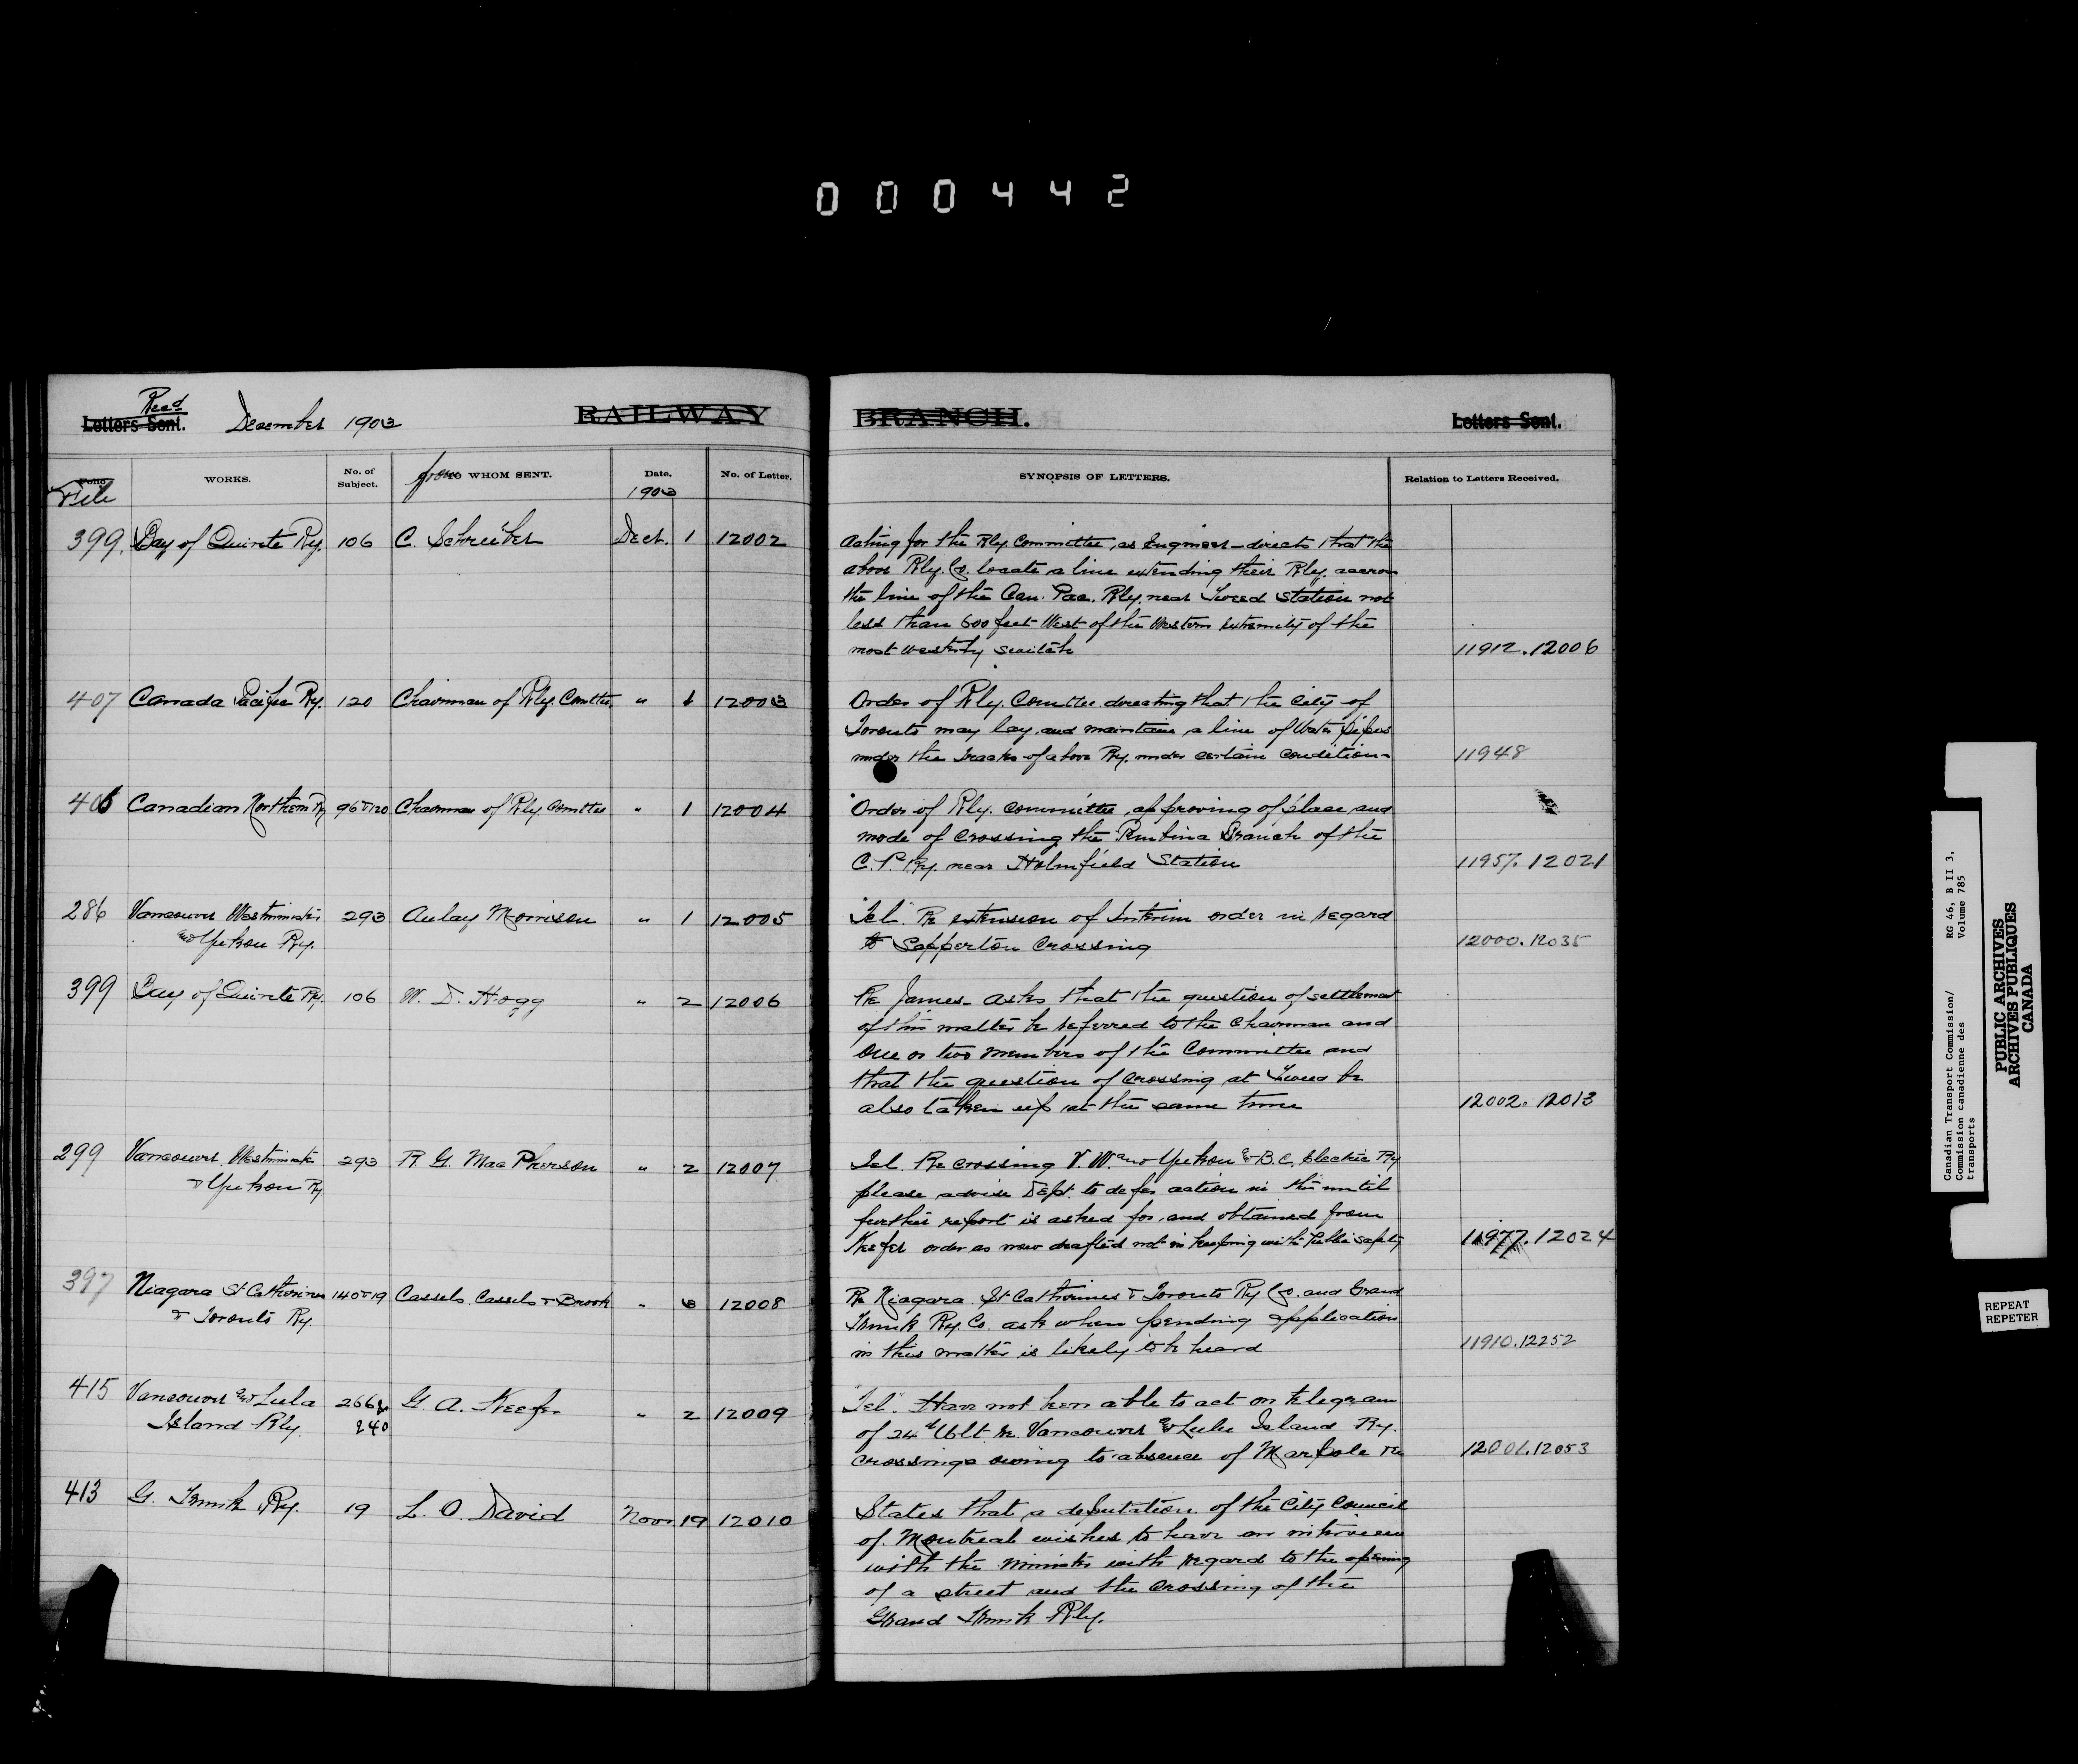 0 0 0 4 4 2
Recd
Letters Sent. December 1903 RAILWAY BRANCH. Letters Sent.
Folio File WORKS. No. of Subject. from TO WHOM SENT. Date. 1903 No. of Letter. SYNOPSIS OF LETTERS. Relation to Letters Received.
399. Bay of Quinte Ry. 106 C. Schreiber Decr. 1 12002 Acting for the Rly. Committee, as Engineer - directs that the
above Rly. Co. locate a line extending their Rly. across
the line of the Can. Pac. Rly. near Tweed Station not
less than 600 feet West of the Western extremity of the
most westerly switch 11912.12006
407 Canada Pacific Ry. 120 Chairman of Rly. Comttee. " 1 12003 Order of Rly. Comttee directing that the City of
Toronto may lay and maintain a line of Water Pipes
under the tracks of above Ry. under certain conditions 11948
406 Canadian Northern Ry 96 & 120 Chairman of Rly Comttee " 1 12004 Order of Rly. Committee approving of place and
mode of crossing the Pembina Branch of the
C.P. Ry. near Holmfield Station 11957.12021
286 Vancouver Westminster 293 Aulay Morrison " 1 12005 "Tel" Re extension of Interim order in regard
and Yukon Ry. to Sapperton Crossing 12000.12035
399 Bay of Quinte Ry. 106 W. D. Hogg " 2 12006 Re James - Asks that the question of settlement
of this matter be referred to the Chairman and
one or two members of the Committee and
that the question of crossing at Tweed be
also taken up at the same time 12002.12013
299 Vancouver. Westminster 293 R. G. Mac Pherson " 2 12007 Tel. Re crossing V. W. and Yukon & B.C. Electric Ry
& Yukon Ry please advise Dept. to defer action in this until
further report is asked for, and obtained from
Keefer order as now drafted not in keeping with Public safety 11977.12024
397 Niagara St Catharines 140 & 19 Cassels Cassels & Brock " 12008 Re Niagara St Catharines & Toronto Ry Co. and Grand
& Toronto Ry. Trunk Ry. Co. ask when pending application
in this matter is likely to be heard 11910.12252
415 Vancouver and Lulu 266 & G. A. Keefer " 2 12009 "Tel". Have not been able to act on telegram
Island Rly. 240 of 24th Ult. re Vancouver & Lulu Island Ry.
crossings owing to absence of Marpole 12001.12053
413 G. Trunk Ry. 19 L. O. David Novr 19 12010 States that a deputation of the City Council
of Montreal wishes to have an interview
with the Minister with regard to the opening
of a street and the crossing of the
Grand Trunk Rly.
Canadian Transport Commission/ RG 46, B II 3,
Commission canadienne des Volume 785
transports
PUBLIC ARCHIVES
ARCHIVES PUBLIQUES
CANADA
REPEAT
REPETER